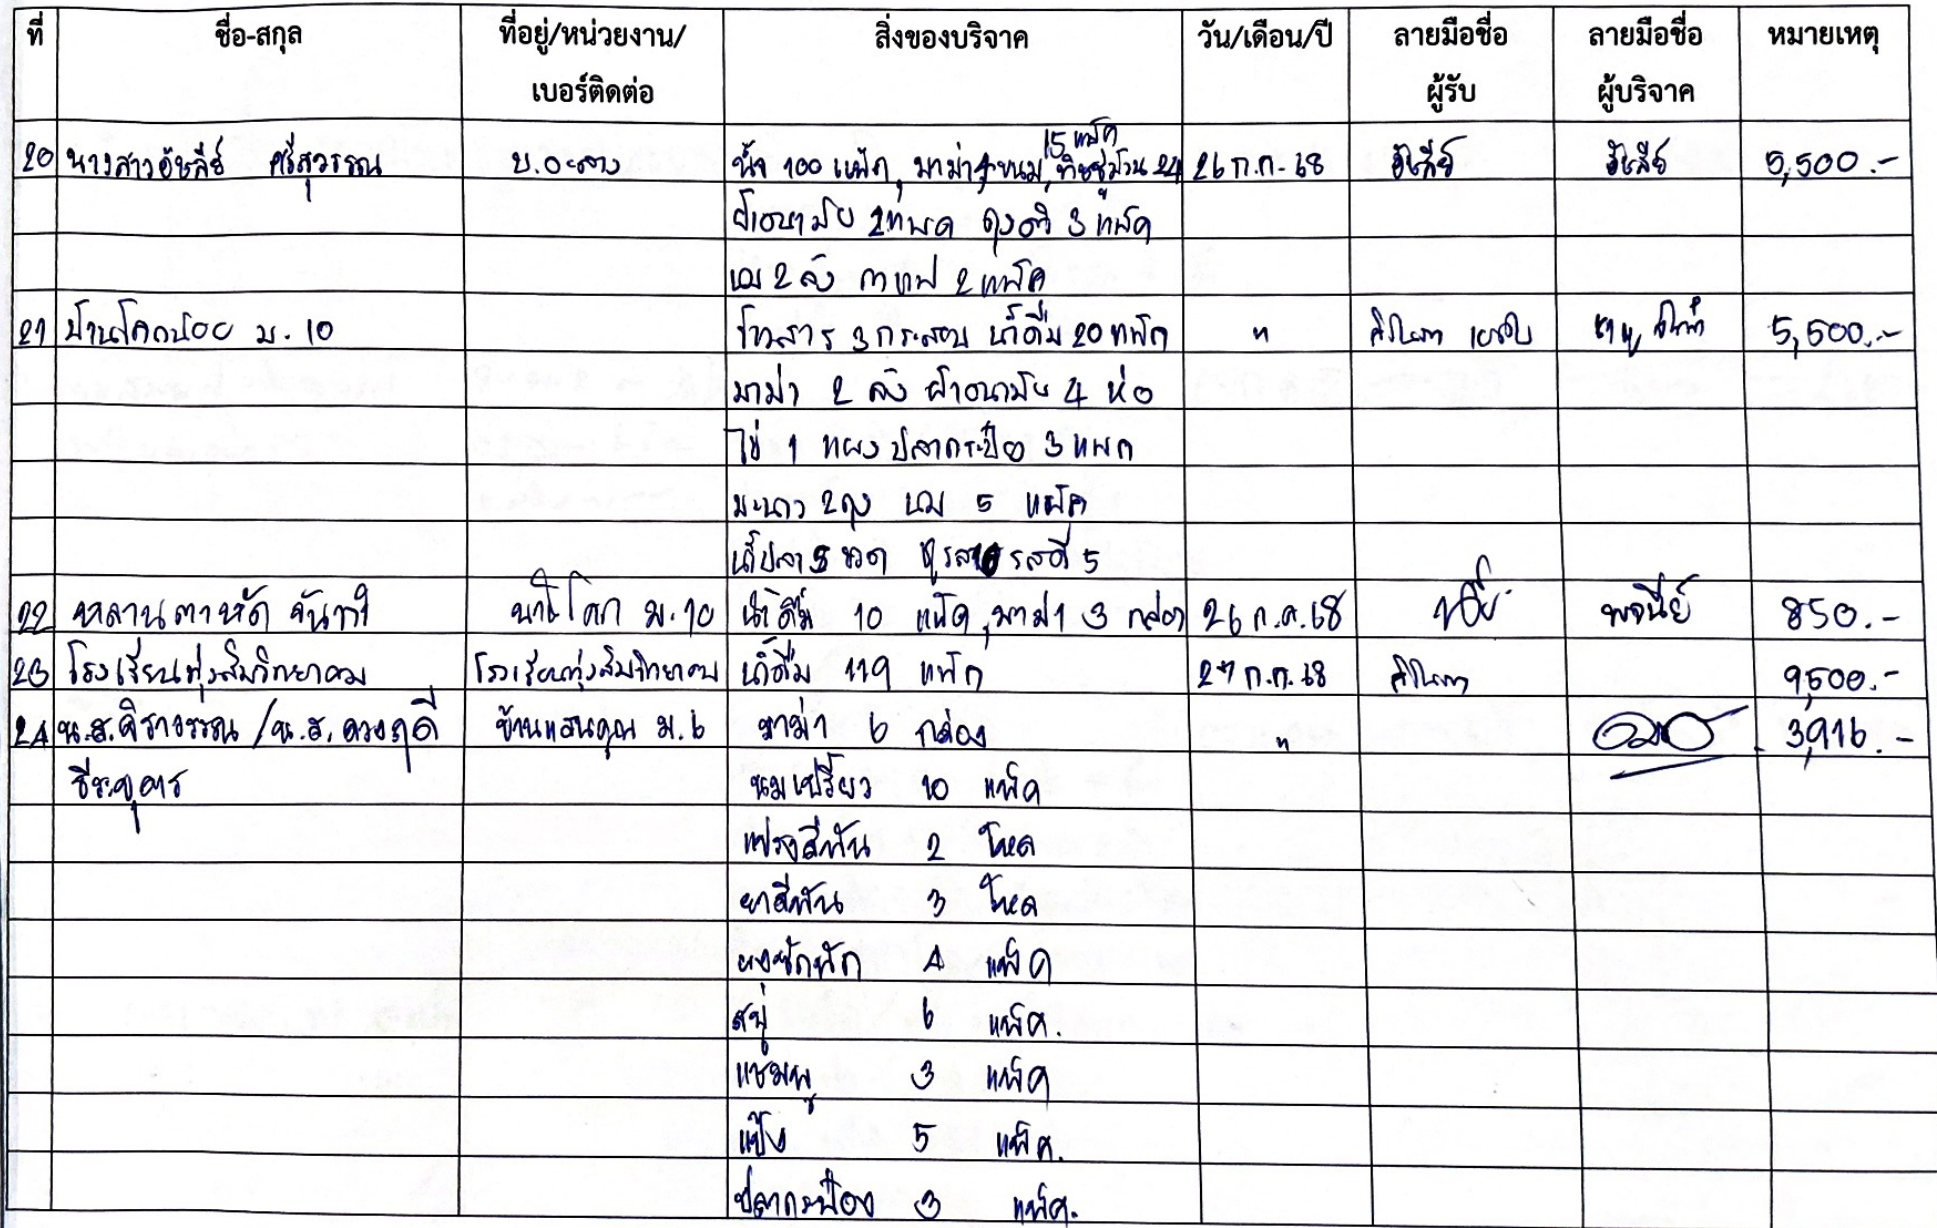 ที่ ชื่อ-สกุล ที่อยู่/หน่วยงาน/ สิ่งของบริจาค วัน/เดือน/ปี ลายมือชื่อ ลายมือชื่อ หมายเหตุ
เบอร์ติดต่อ ผู้รับ ผู้บริจาค
15 แพ็ค
20 นางสาวอัชลีย์ ศรีสุวรรณ น้ำ 100 แพ็ค, มาม่า+ขนม, ทิชชู่ม้วน 24 26 ก.ค. 68 อัชลีย์ อัชลีย์ 5,500.-
ผ้าอนามัย 2 แพค ถุงดำ 3 แพ็ค
นม 2 ลัง กาแฟ 2 แพ็ค
21 บ้านโคกน้อย ม.10 ข้าวสาร 3 กระสอบ น้ำดื่ม 20 แพ็ค " 5,500.-
มาม่า 2 ลัง ผ้าอนามัย 4 ห่อ
ไข่ 1 แผง ปลากระป๋อง 3 แพค
มะนาว 2 ถุง นม 5 แพ็ค
น้ำปลา 5 ขวด รสดี 5
22 หลานตาหัด จันทา ม.10 น้ำดื่ม 10 แพ็ค, มาม่า 3 กล่อง 26 ก.ค. 68 พจนีย์ 850.-
23 โรงเรียนทุ่งส้มวิทยาคม โรงเรียนทุ่งส้มวิทยาคม น้ำดื่ม 119 แพ็ค 27 ก.ค. 68 9,500.-
24 น.ส.ศิราวรรณ / น.ส. ดวงฤดี บ้านแสนคุณ ม.6 มาม่า 6 กล่อง " 3,916.-
นมเปรี้ยว 10 แพ็ค
แปรงสีฟัน 2 โหล
ยาสีฟัน 3 โหล
ผงซักฟอก 4 แพ็ค
สบู่ 6 แพ็ค.
แชมพู 3 แพ็ค
แป้ง 5 แพ็ค.
ปลากระป๋อง 3 แพ็ค.